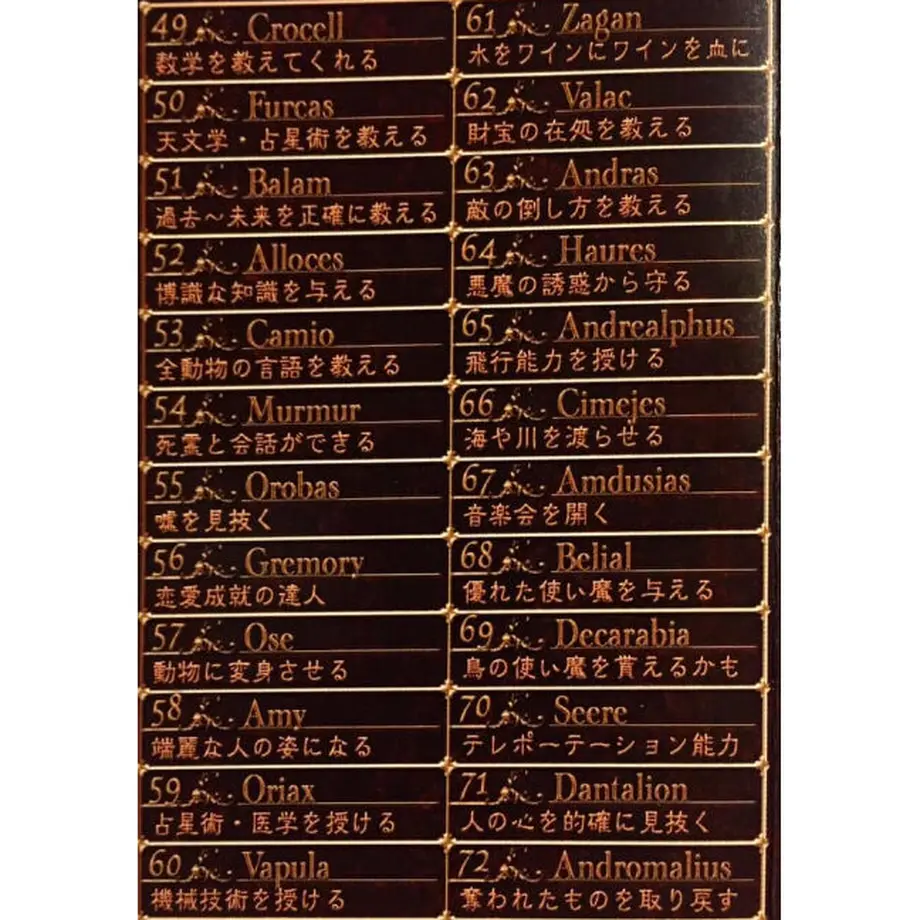 49 Crocell
数学を教えてくれる
50 Furcas
天文学・占星術を教える
51 Balam
過去～未来を正確に教える
52 Alloces
博識な知識を与える
53 Camio
全動物の言語を教える
54 Murmur
死霊と会話ができる
55 Orobas
嘘を見抜く
56 Gremory
恋愛成就の達人
57 Ose
動物に変身させる
58 Amy
端麗な人の姿になる
59 Oriax
占星術・医学を授ける
60 Vapula
機械技術を授ける
61 Zagan
水をワインにワインを血に
62 Valac
財宝の在処を教える
63 Andras
敵の倒し方を教える
64 Haures
悪魔の誘惑から守る
65 Andrealphus
飛行能力を授ける
66 Cimejes
海や川を渡らせる
67 Amdusias
音楽会を開く
68 Belial
優れた使い魔を与える
69 Decarabia
鳥の使い魔を貰えるかも
70 Seere
テレポーテーション能力
71 Dantalion
人の心を的確に見抜く
72 Andromalius
奪われたものを取り戻す